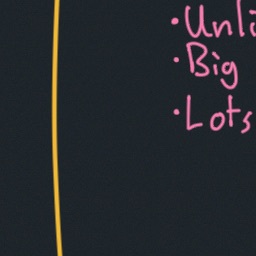 · Unli
· Big
· Lots